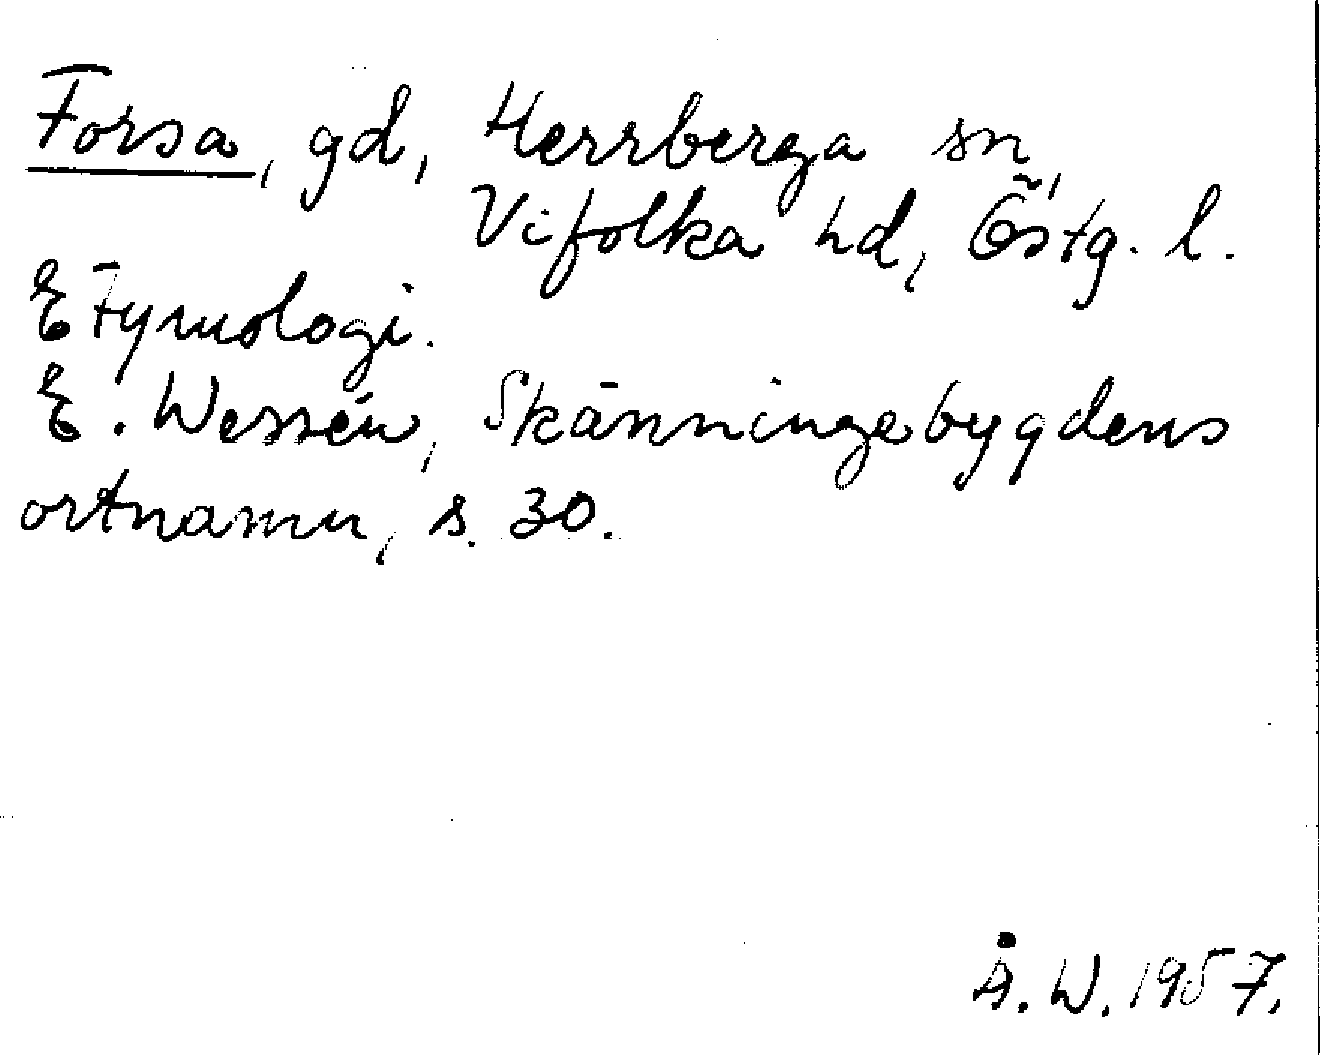 Forsa, gd, Herrberga sn,
Vifolka hd, Östg. l.
Etymologi.
E. Wessén, Skänningebygdens
ortnamn, s. 30.
Å. W. 1957.